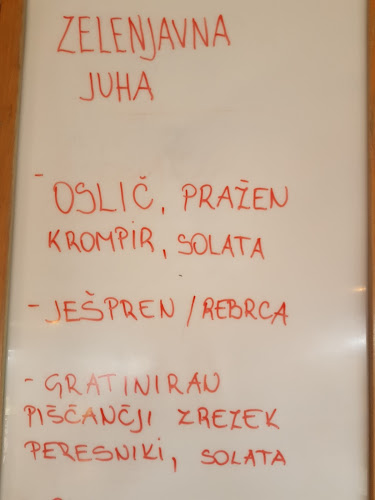 ZELENJAVNA
JUHA
- OSLIČ, PRAŽEN
KROMPIR, SOLATA
- JEŠPREN / REBRCA
- GRATINIRAN
PIŠČANČJI ZREZEK
PERESNIKI, SOLATA